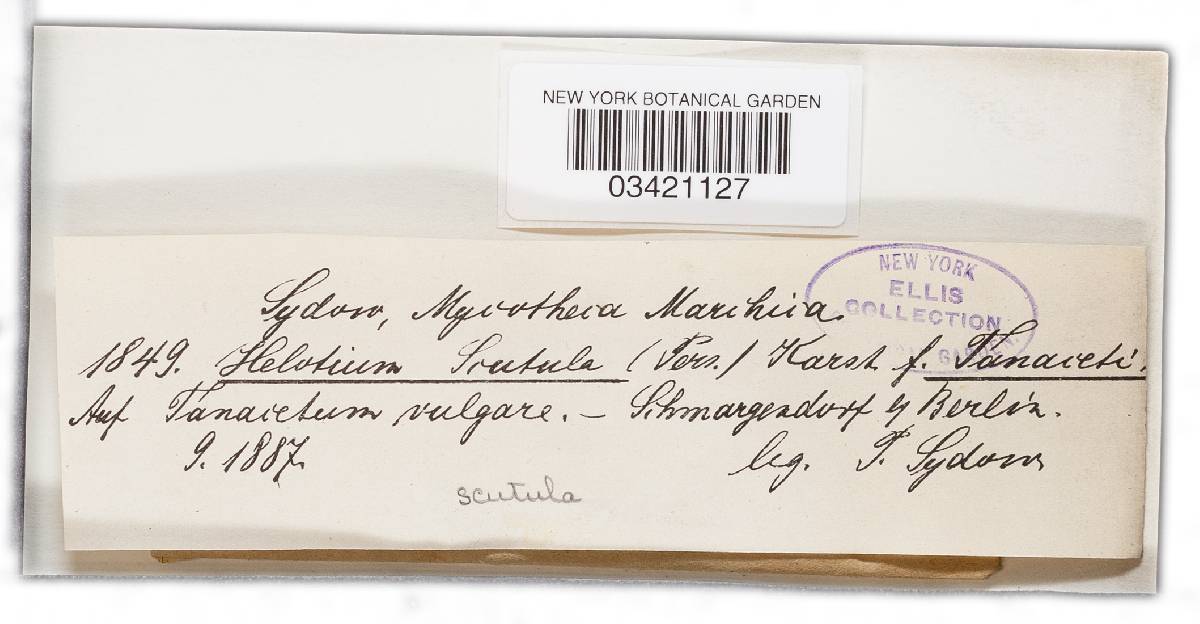 NEW YORK BOTANICAL GARDEN
03421127
NEW YORK
ELLIS
COLLECTION
Sydow, Mycotheca Marchica.
1849. Helotium Scutula (Pers.) Karst f. Tanaceti.
Auf Tanacetum vulgare. – Schmargendorf b/ Berlin.
9. 1887.
leg. P. Sydow
scutula